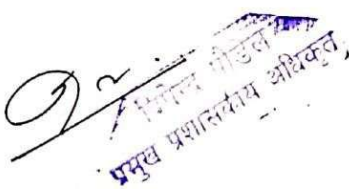 पौडेल
प्रमुख प्रशासकीय अधिकृत